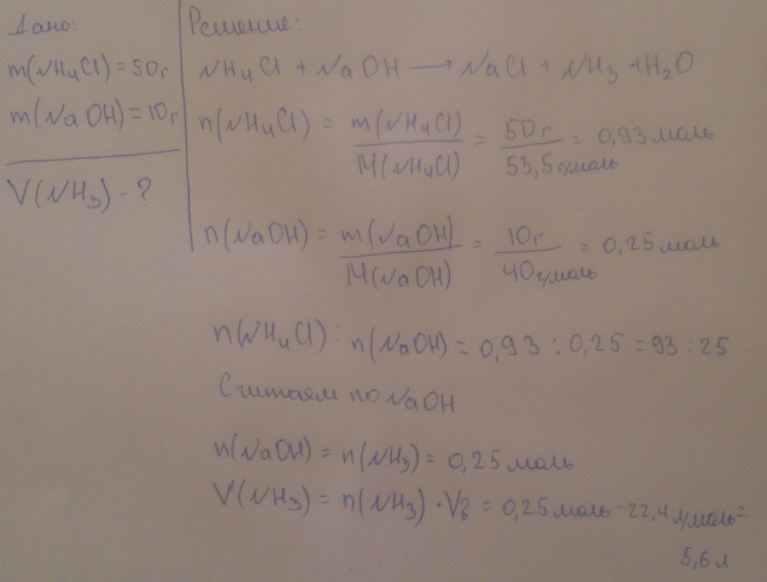 Дано:
m(NH₄Cl) = 50г
m(NaOH) = 10г
V(NH₃) - ?
Решение:
NH₄Cl + NaOH → NaCl + NH₃ + H₂O
n(NH₄Cl) = m(NH₄Cl) / M(NH₄Cl) = 50г / 53,5г/моль = 0,93 моль
n(NaOH) = m(NaOH) / M(NaOH) = 10г / 40г/моль = 0,25 моль
n(NH₄Cl) : n(NaOH) = 0,93 : 0,25 = 93 : 25
Считаем по NaOH
n(NaOH) = n(NH₃) = 0,25 моль
V(NH₃) = n(NH₃) · Vв = 0,25 моль · 22,4 л/моль =
5,6 л